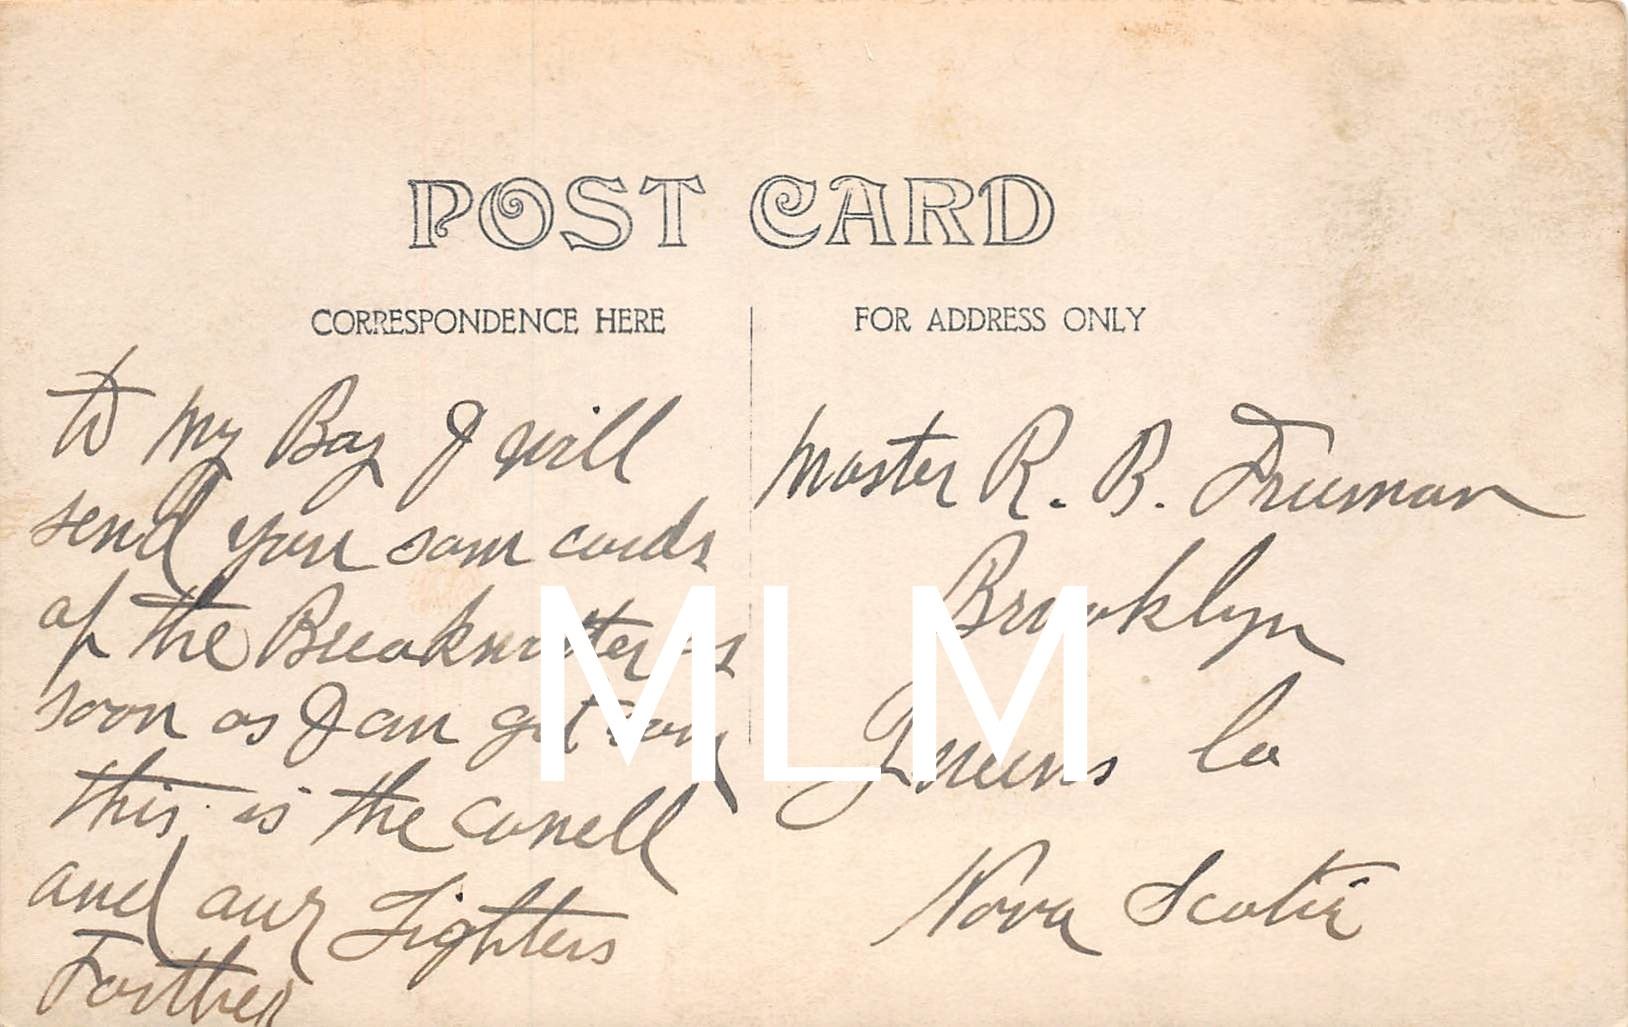 POST CARD
CORRESPONDENCE HERE
FOR ADDRESS ONLY
to My Boy I will
send you som cards
of the Breakwatter as
soon as I can get any
this is the canell
and our Lighters
Farther
Master R. B. Freeman
Brooklyn
Queens Co
Nova Scotia
MLM